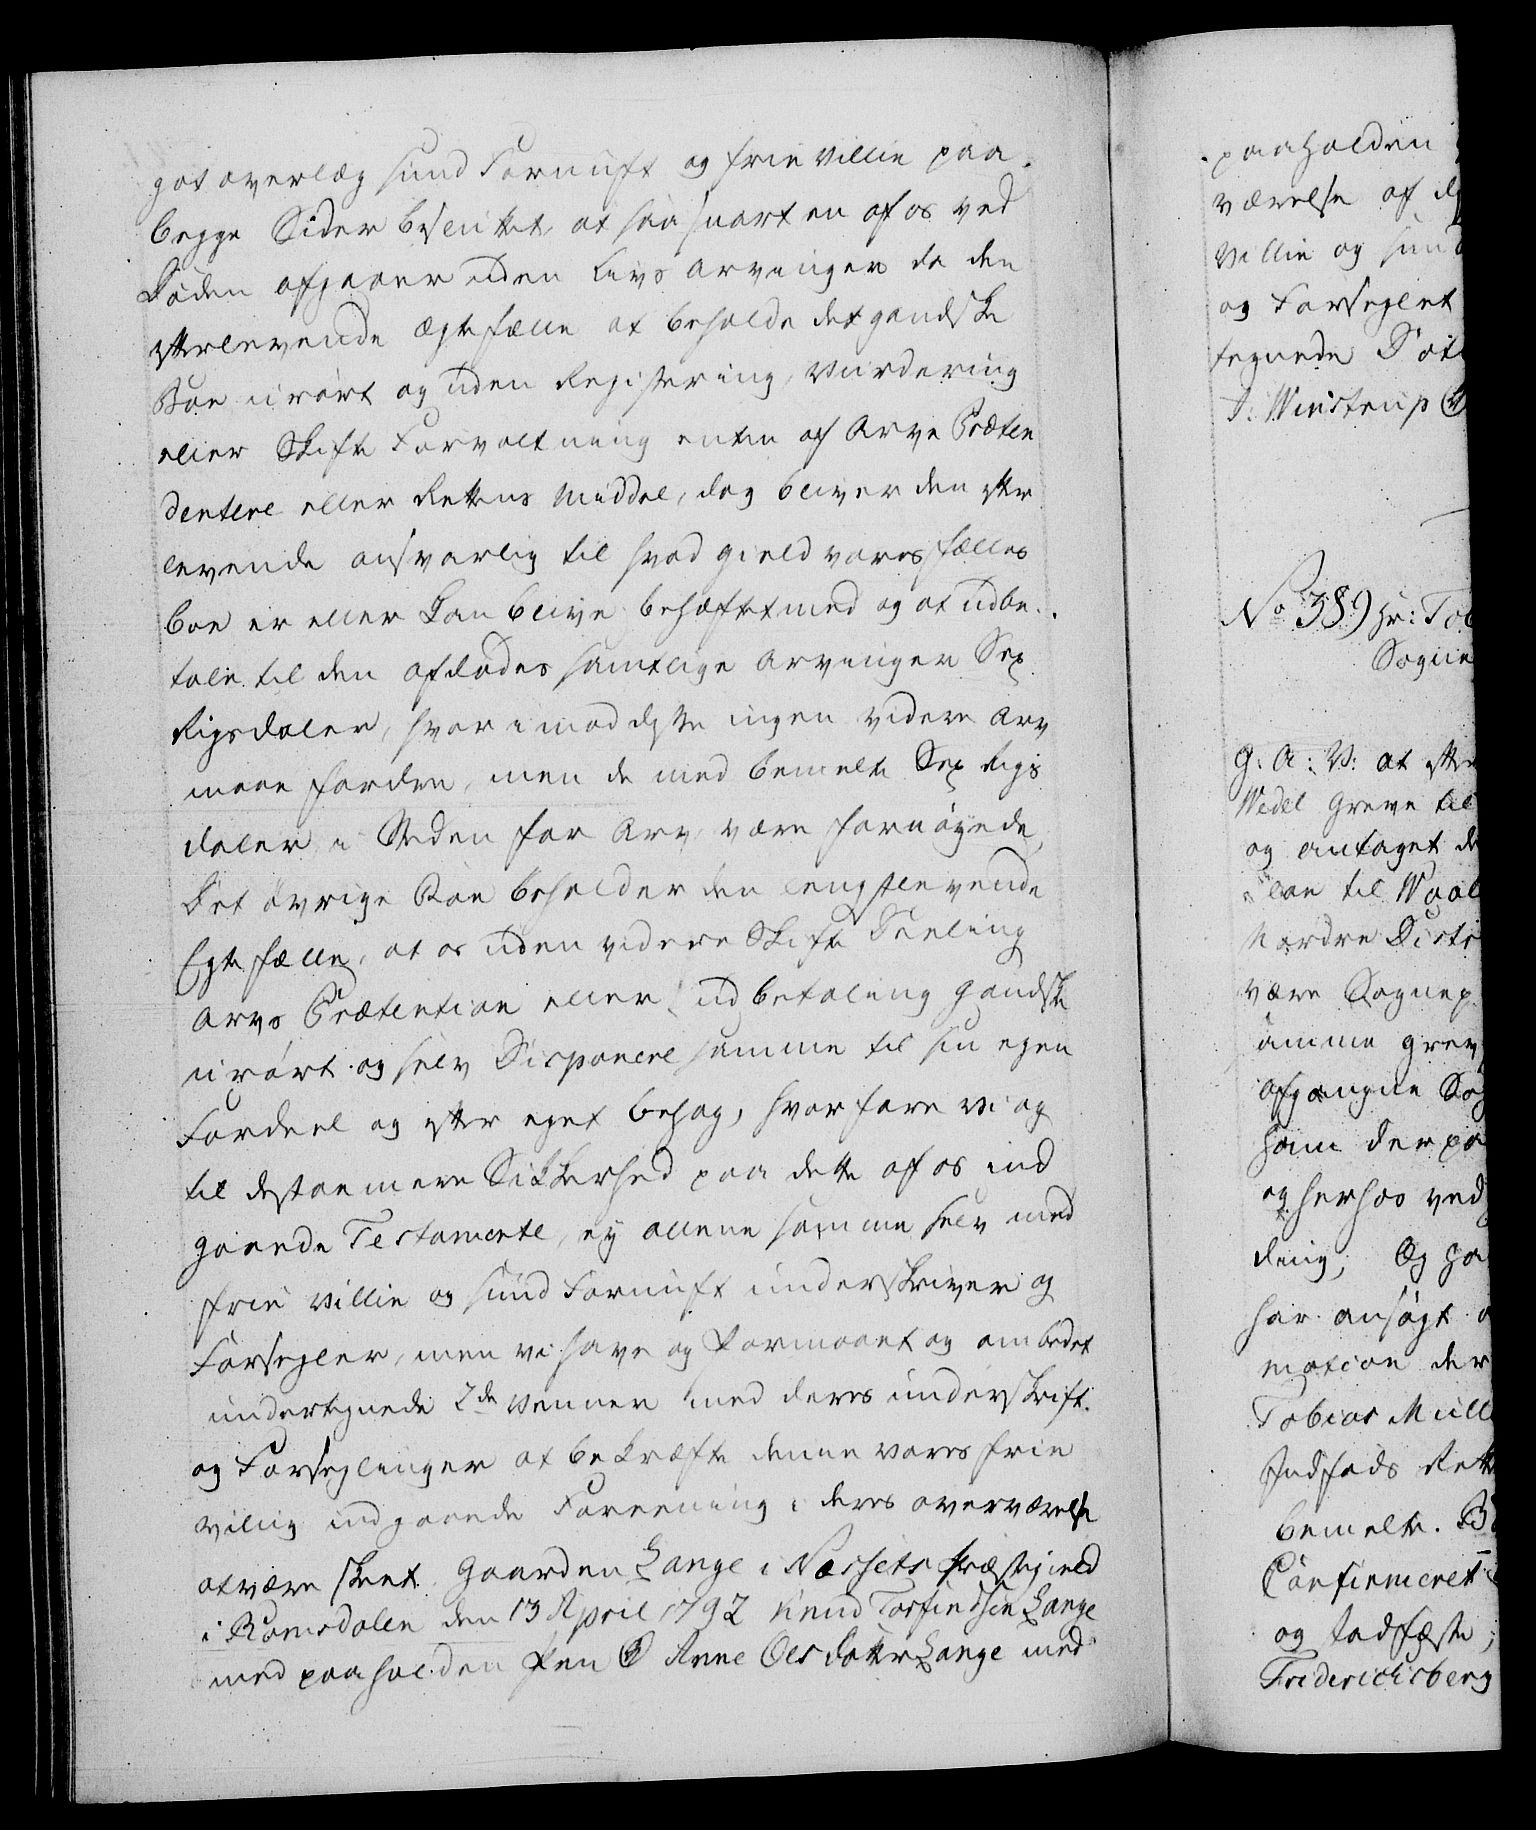 got overlæg sund Fornuft og frie villie paa
begge Sider besluttet, at saa snart en af os ved
Døden afgaaer uden Livs Arvinger da den
efterlevende Ægtefælle at beholde det gandske
Boe urørt og uden Registering, Vurdering
eller Skifte Forvaltning enten af Arve Præten
dentere eller Rettens Middel, dog bliver den efter
levende ansvarlig til hvad gield vores fælles
boe er eller kan blive behæftet med og at udbe
tale til den afdødes samtlige Arvinger Sex
Rigsdaler, hvorimod disse ingen videre Arv
maae fordre, men de med bemelte Sex Rigs
daler i Steden for Arv være fornøyede,
Det øvrige Boe beholder den længstlevende
Egtefælle, at os uden videre Skifte Deeling
Arvs Prætention eller udbetaling gandske
urørt og selv Disponere samme til sin egen
Fordeel og efter eget behag, hvorfore vi og
til destoe mere Sikkerhed paa dette af os ind
gaaende Testamente, ey allene samme selv med
frie villie og sund Fornuft underskriver og
Forsegler, men vi have og formaaet og ombedet
undertegnede 2de Venner med deres underskrift
og Forseglinger at bekræfte denne vores frie
villig indgaaende Foreening i deres overværelse
at være skeet. Gaarden Lange i Næssets Præstegield
i Romsdalen den 13 April 1792 Knud Torfindsen Lange
med paaholden Pen Anne Olsdatter Lange med
paaholden
værelse af
villie og sund
og Forseglet
tegnede
J. Winstrup
No 389) Hr: Tob
Sogne
G. A. V: at efter
Wedel Greve til
og antaget
til
Nordre Distr
være Sognep
amme grev
afgangne Sog
ham derpaa
og herhos ved
ding; Og ha
har ansøgt
mation der
Tobias Müll
Indføds Rett
bemelte.
Confirmeret
og stadfæste,
Friderichsberg